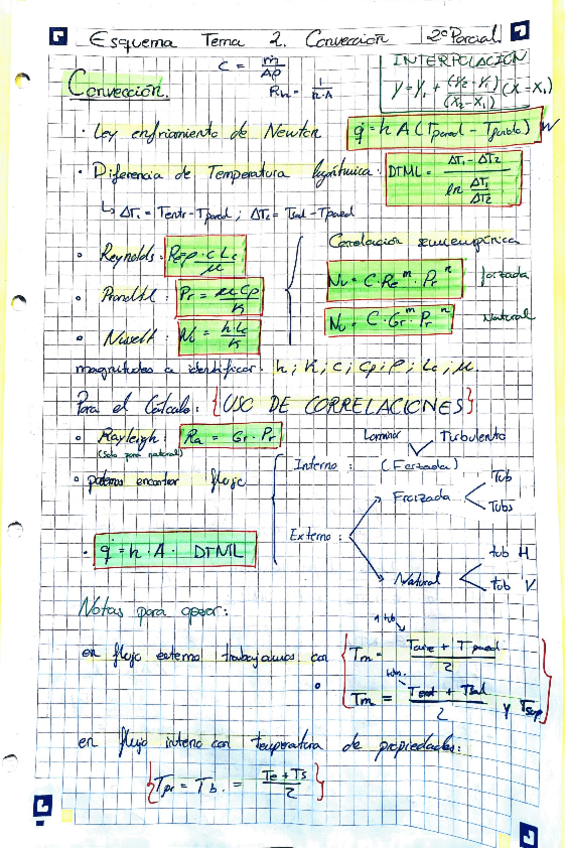 Esquema Tema 2. Convección 2º Parcial
C = ṁ/Aρ
Rn = 1/h·A
INTERPOLACIÓN
y = y₁ + (y₂ - y₁)/(x₂ - x₁) (x - x₁)
Convección.
· Ley enfriamiento de Newton q̇ = h A (Tpared - Tfluido) W
· Diferencia de Temperatura logarítmica: DTML = ΔT₁ - ΔT₂ / ln ΔT₁/ΔT₂
↳ ΔT₁ = Tentr - Tpared ; ΔT₂ = Tsal - Tpared
Correlación semiempírica
· Reynolds: Re = ρ·c·Lc/μ
Nu = C·Re^m·Pr^n forzada
· Prandtl: Pr = μ·Cp/K
Nu = C·Gr^m·Pr^n Natural
· Nusselt: Nu = h·Lc/K
magnitudes a identificar: h ; K ; c ; Cp ; ρ ; Lc ; μ.
Para el Cálculo: {USO DE CORRELACIONES}
· Rayleigh: Ra = Gr·Pr
(Solo para natural)
Laminar Turbulento
Interno: (Forzada)
· podemos encontrar flujo
Externo:
Forzada
Tub
Tubs
Natural
tub H
tub V
· q̇ = h·A· DTML
Notas para operar:
1 tub
en flujo externo trabajamos con Tm = Taire + Tpared / 2
Tm = Tent + Tsal / 2 y Tsup
en flujo interno con temperatura de propiedades:
{Tpr = Tb. = Te + Ts / 2}